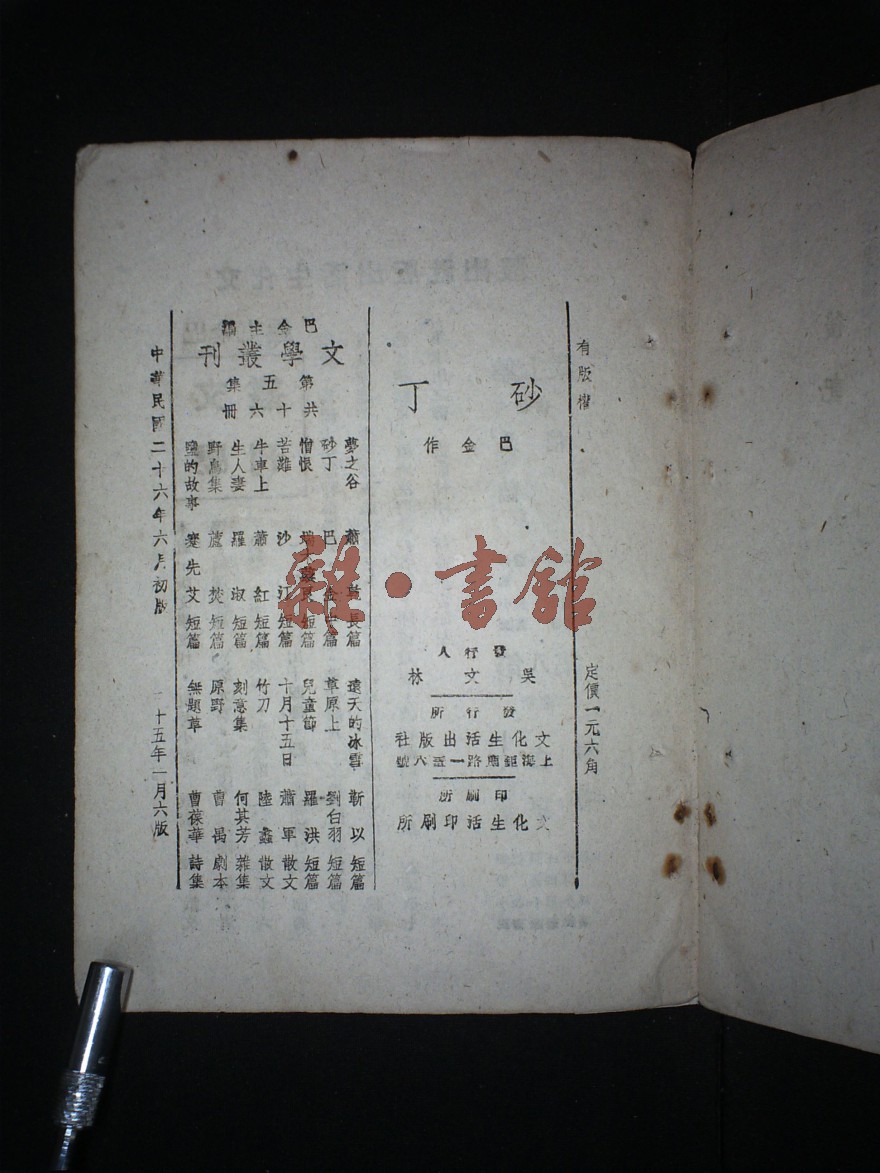 有版權
定價一元六角
砂丁
巴金作
發行人
吳文林
發行所
文化生活出版社
上海鉅鹿路一五六號
印刷所
文化生活印刷所
巴金主編
文學叢刊
第五集
共十六冊
夢之谷 蕭 長篇
砂丁 巴金 中篇
憎恨 短篇
苦難 沙汀 短篇
牛車上 蕭紅 短篇
生人妻 羅淑 短篇
野鳥集 蘆焚 短篇
鹽的故事 蹇先艾 短篇
遠天的冰雪 靳以 短篇
草原上 劉白羽 短篇
兒童節 羅洪 短篇
十月十五日 蕭軍 散文
竹刀 陸蠡 散文
刻意集 何其芳 雜集
原野 曹禺 劇本
無題草 曹葆華 詩集
中華民國二十六年六月初版
十五年一月六版
雜·書館